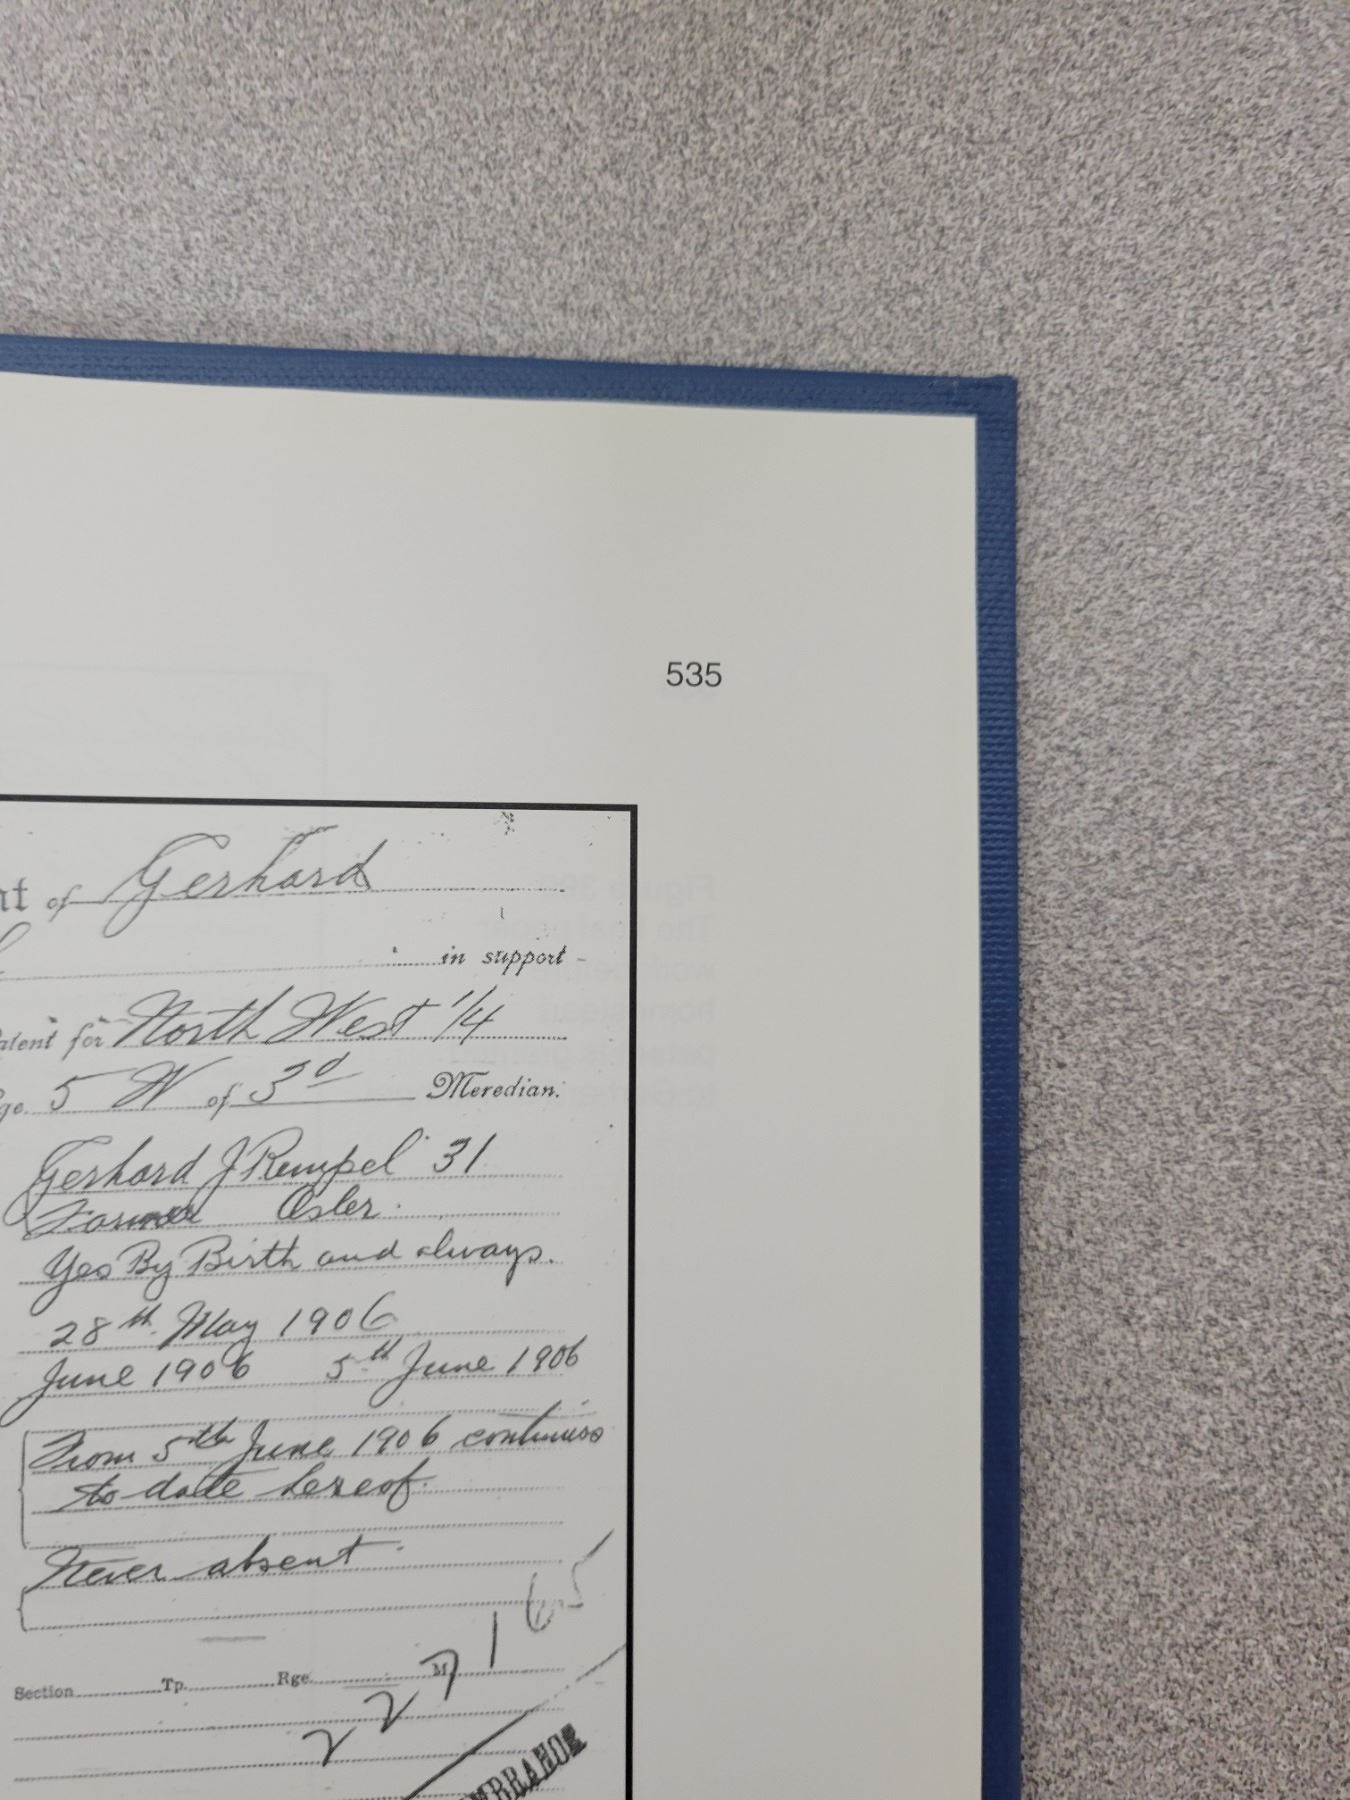 535
nt of Gerhard
in support -
atent for North West 1/4
ge. 5 W of 3d Meredian.
Gerhard J Rempel 31
Farmer Osler.
Yes By Birth and always.
28th May 1906
June 1906 5th June 1906
From 5th June 1906 continuos
to date hereof.
Never absent
Section Tp. Rge. M.
227165